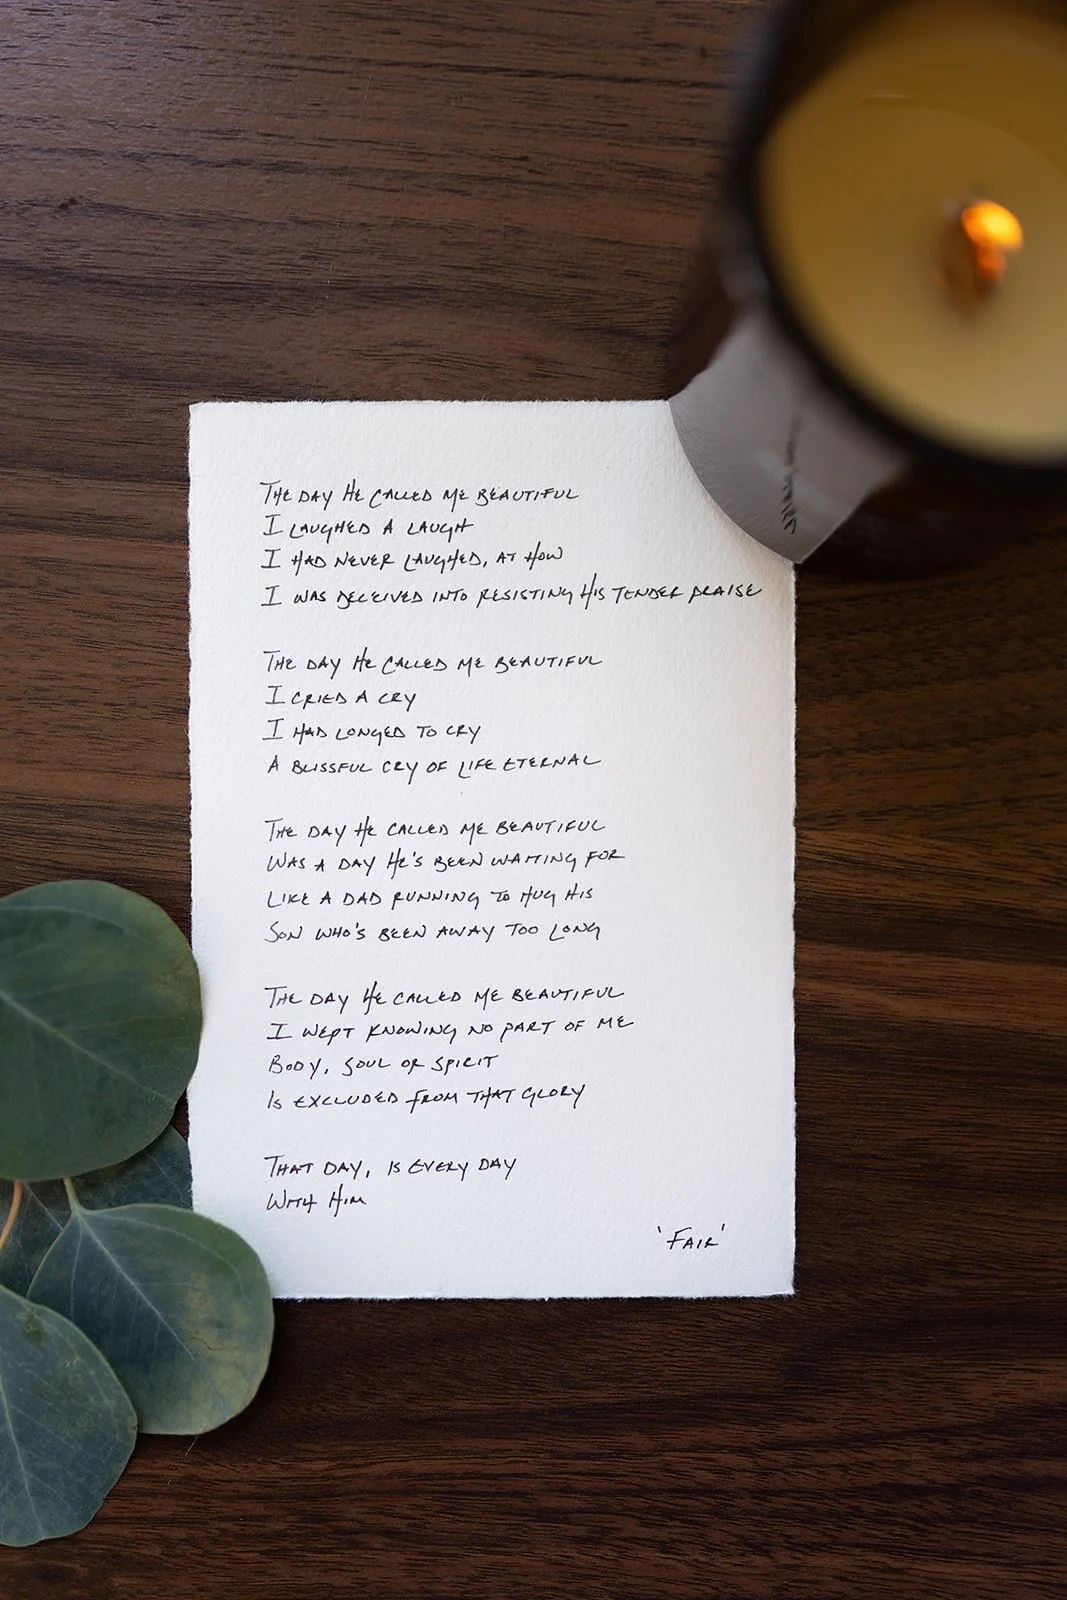 The day He called me beautiful
I laughed a laugh
I had never laughed, at how
I was deceived into resisting His tender praise
The day He called me beautiful
I cried a cry
I had longed to cry
A blissful cry of life eternal
The day He called me beautiful
Was a day He's been waiting for
Like a dad running to hug his
Son who's been away too long
The day He called me beautiful
I wept knowing no part of me
Body, soul or spirit
Is excluded from that glory
That day, is every day
With Him
'Fair'